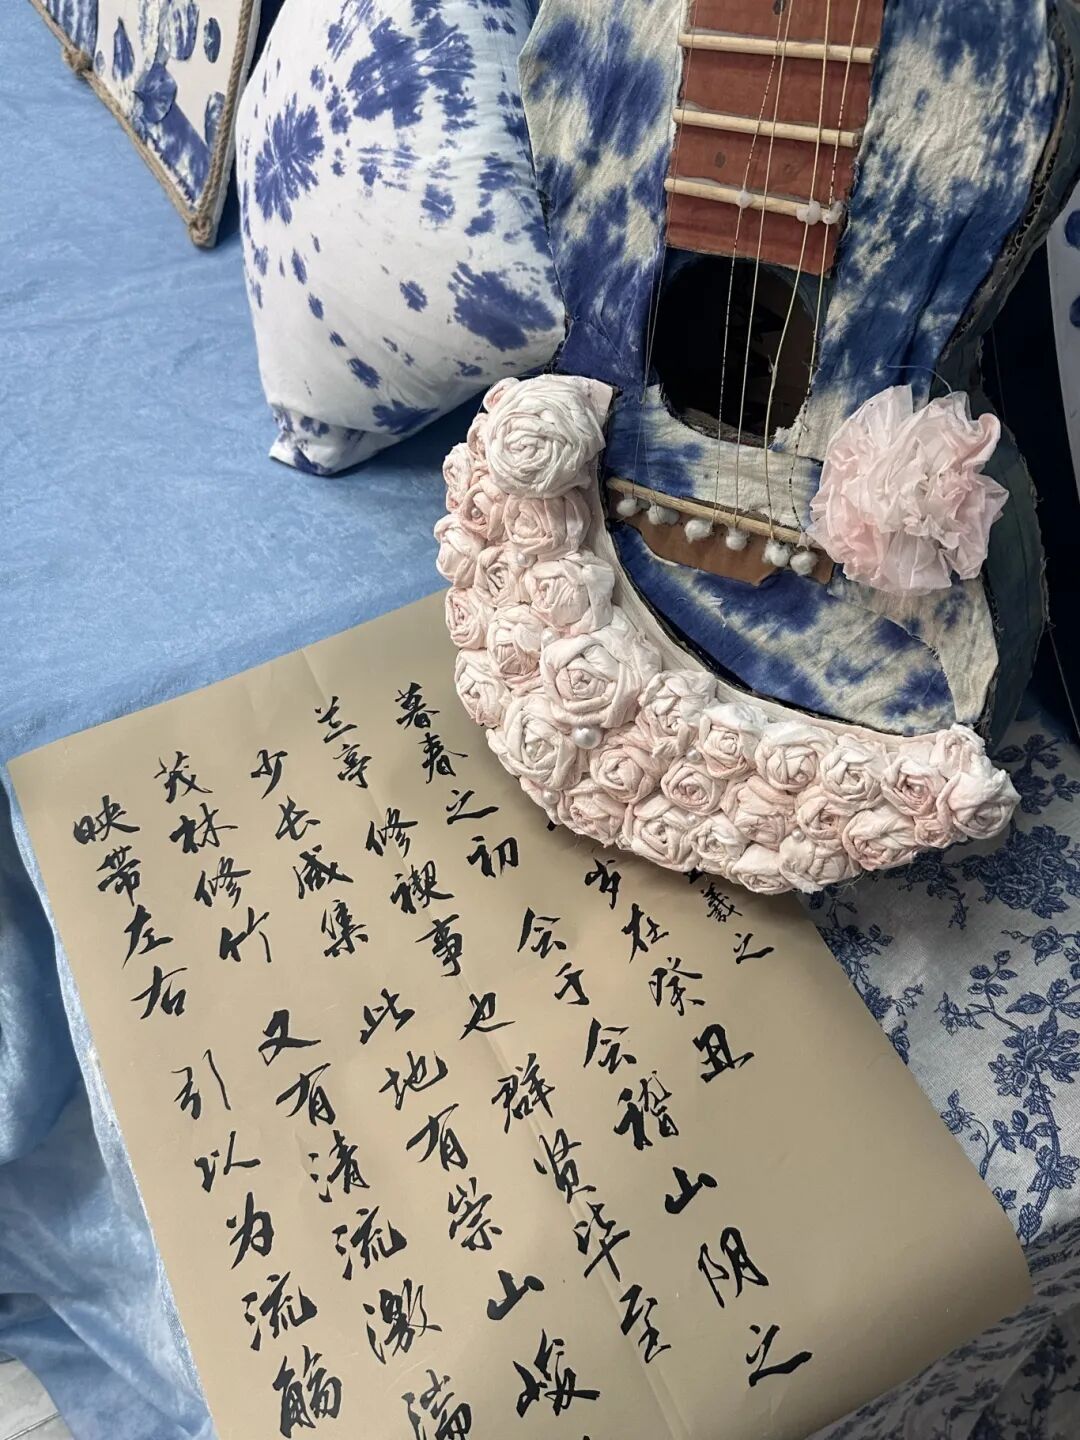 羲之
岁在癸丑
暮春之初 会于会稽山阴之
兰亭 修禊事也 群贤毕至
少长咸集 此地有崇山峻
茂林修竹 又有清流激湍
映带左右 引以为流觞